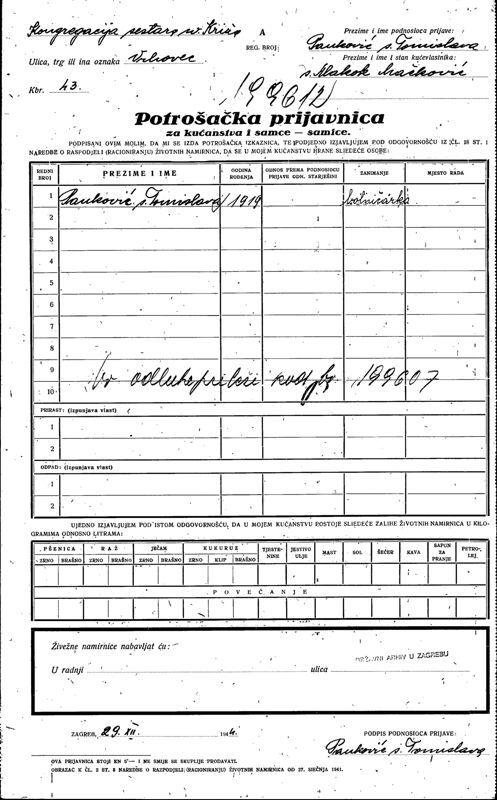 Kongregacija sestara sv. Križa
A
REG. BROJ:
Prezime i ime podnosioca prijave:
Pauković s. Tomislava
Ulica, trg ili ina oznaka Vrhovec
Prezime i ime i stan kućevlastnika:
Kbr. 43
199612
Potrošačka prijavnica
za kućanstva i samce — samice.
PODPISANI OVIM MOLIM, DA MI SE IZDA POTROŠAČKA IZKAZNICA, TE PODJEDNO IZJAVLJUJEM POD ODGOVORNOŠĆU IZ ČL. 18 ST. 1
NAREDBE O RASPODJELI (RACIONIRANJU) ŽIVOTNIH NAMIRNICA, DA SE U MOJEM KUĆANSTVU HRANE SLIEDEĆE OSOBE:
REDNI BROJ PREZIME I IME GODINA RODJENJA ODNOS PREMA PODNOSIOCU PRIJAVE ODN. STARJEŠINI ZANIMANJE MJESTO RADA
1 Pauković s. Tomislava 1919 bolničarka
2
3
4
5
6
7
8
9
10 odluke kod 199607
PRIRAST: (izpunjava vlast)
1
2
ODPAD: (izpunjava vlast)
1
2
UJEDNO IZJAVLJUJEM POD ISTOM ODGOVORNOŠĆU, DA U MOJEM KUĆANSTVU POSTOJE SLIEDEĆE ZALIHE ŽIVOTNIH NAMIRNICA U KILO-
GRAMIMA ODNOSNO LITRAMA:
PŠENICA RAŽ JEČAM KUKURUZ TJESTE- NINE JESTIVO ULJE MAST SOL ŠEĆER KAVA SAPUN ZA PRANJE PETRO- LEJ
ZRNO BRAŠNO ZRNO BRAŠNO ZRNO BRAŠNO ZRNO KLIP BRAŠNO
POVEĆANJE
Živežne namirnice nabavljat ću:
DRŽAVNI ARHIV U ZAGREBU
U radnji ulica
ZAGREB, 29. XII. 1944.
PODPIS PODNOSIOCA PRIJAVE:
Pauković s. Tomislava
OVA PRIJAVNICA STOJI KN 5— I NE SMIJE SE SKUPLJE PRODAVATI.
OBRAZAC K ČL. 2 ST. 8 NAREDBE O RASPODJELI (RACIONIRANJU) ŽIVOTNIH NAMIRNICA OD 27. SIEČNJA 1941.